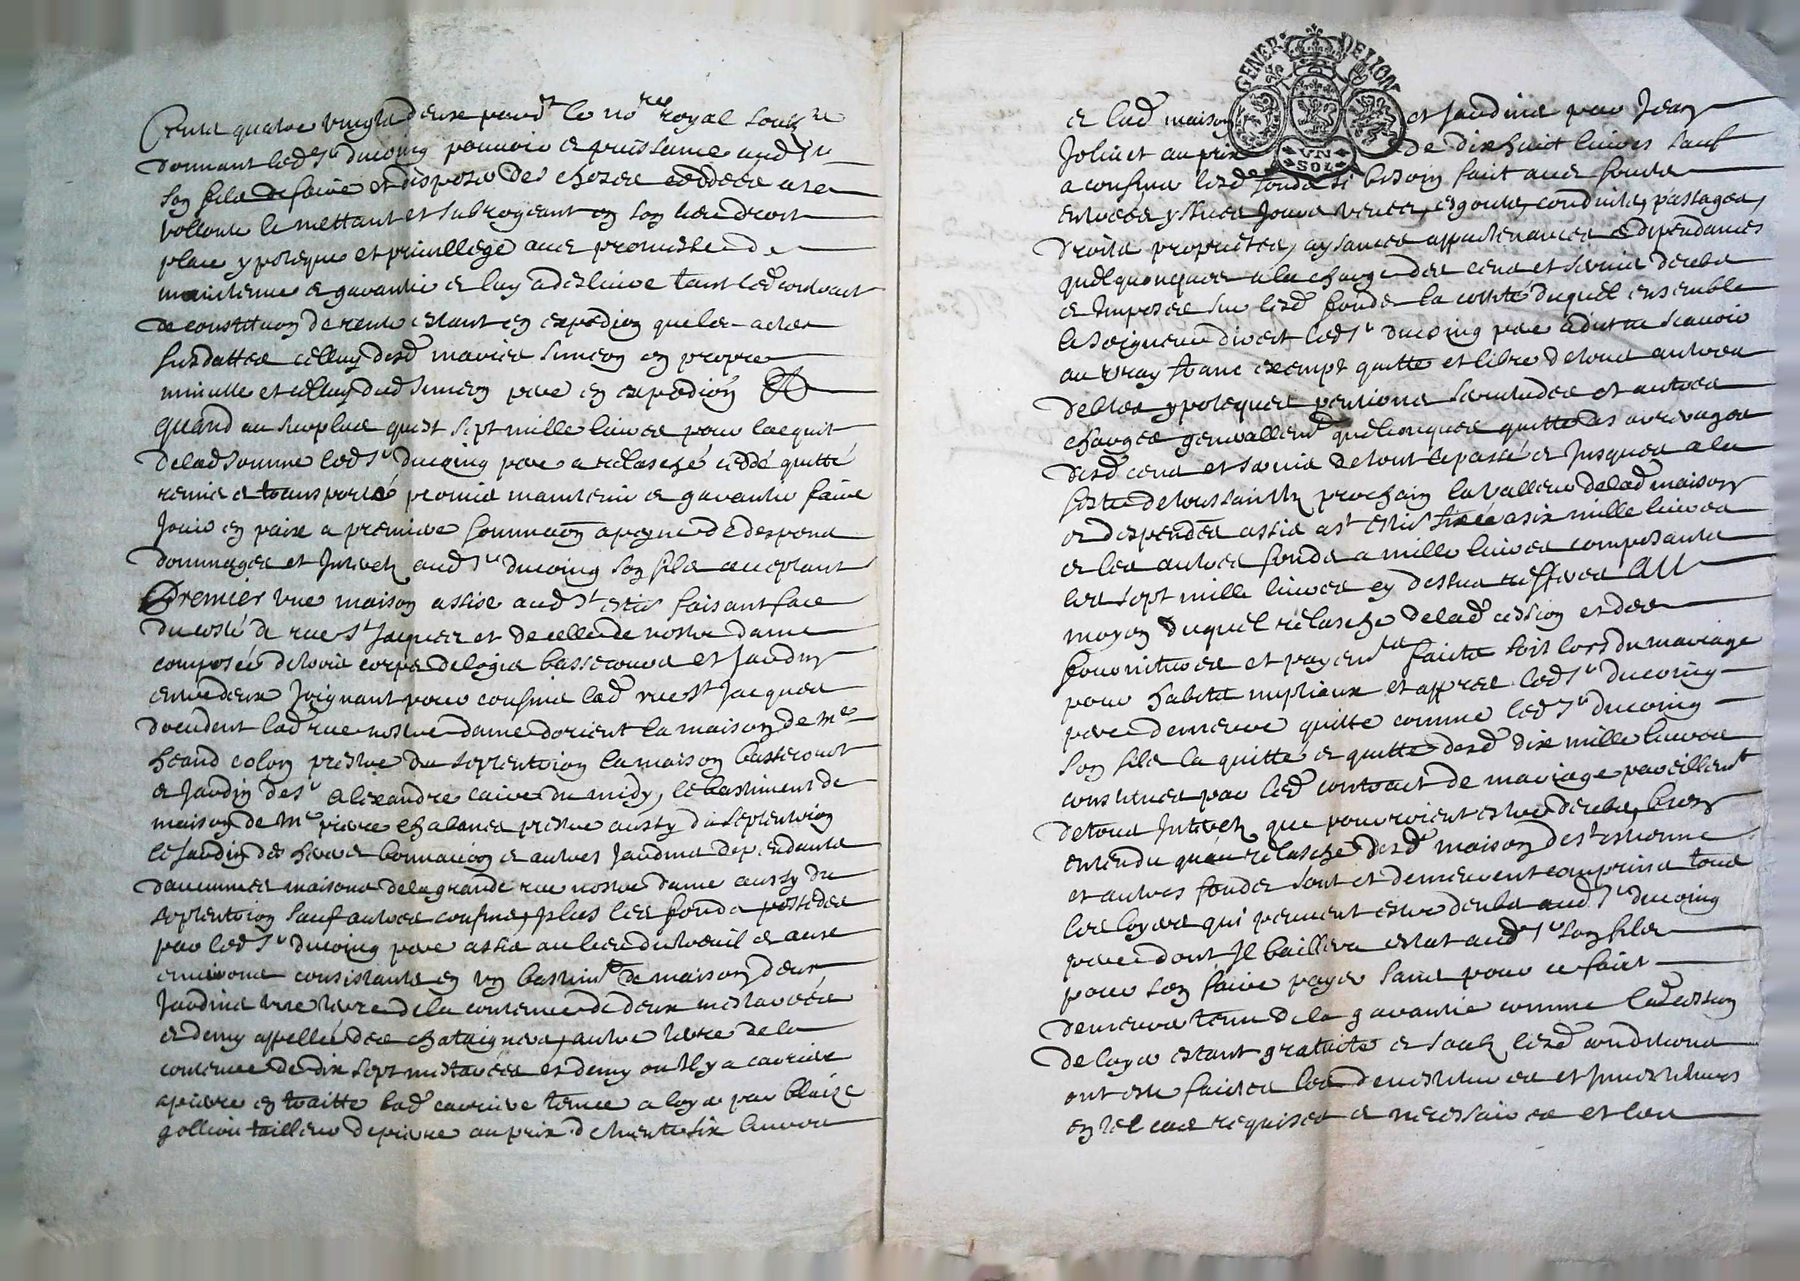 Cents quatre vingts deux pard^t le no^re royal soubz ne
donnant led^t s^r ducoing pouvoir et puissance aud^t s^r
son fils de faire et disposer des choses ceddées a sa
vollonte le mettant et subrogeant en son lieu droit
place ypoteque et privillege avec promesse de
maintenue et garantie et luy a deslivré tant led^t contract
de constitution de rente estant en expedion que les actes
susdattes celluy desd^t mariés simeon en propre
minutte et celluy dud simeon pere en expedion
Quand au surplus qui est sept mille livres pour lacquit
de lad somme led^t s^r ducoing pere a relasché ceddé quitté
remis et transporté promis maintenir et garantir faire
jouir en paix a premiere sommaon a peyne de despens
dommages et Interetz aud^t s^r ducoing son fils acceptant
Premier une maison assise aud^t s^t esti^e faisant face
du costé de rue s^t Jacques et de celle de nostre dame
composée de trois corps de logis basse cours et jardin
entredeux joignant pour confins lad^t rue s^t Jacques
doccident lad^t rue nostre dame dorient la maison de m^e
heand colon prestre du septentrion la maison basse court
et jardin de s^r alexandre caire du midy, le bastiment de
maison de m^e pierre chalances prestre aussy du septentrion
le jardin des heors bonnacion et autres jardins dependants
daucunnes maisons de la grande rue nostre dame aussy du
septentrion sauf autres confins, plus les fonds possedes
par led^t s^r ducoing pere assis au lieu du treuil et aux
environs consistants en un bastim^t de maison, deux
jardins une terre de la contenue de deux mestarées
et demy appellée des chataigners, autre terre de la
contenue de dix sept mestarées et demy ou Il y a carriere
a pierre en traitte lad^t carriere tenue a loyer par blaize
gollion tailleur de pierre au prix de trente six livres
et lad^t maison et jardins par Jean
Joliet au prix de dix huit livres sauf
a confiner lesd^s fonds si besoin fait avec fonds
entrées yssues jours veues, esgouts, conduits, passages,
droits proprietés, aysances appartenances et dependances
quelquonques a la charge des cens et servis deubs
et Imposés sur lesd^t fonds la cotité duquel ensemble
le seigneur direct led^t s^r ducoing pere a dit ne scavoir
au vray franc exempt quitte et libre de tous autres
debtes ypoteques pentions servitudes et autres
charges generallem^t quelconques quitte des arrerages
desd^t cens et servis de tout le passé et Jusques a la
feste de toussaintz prochain la valleur de lad^t maison
et despendces assis a s^t esti^e fixée a six mille livres
et les autres fonds a mille livres composants
les sept mille livres cy dessus reffives au
moyen duquel relasche de lad^t cession et des
fournitures et payem^ts faicts soit lors du mariage
pour habits nuptiaux et apprés led^t s^r ducoing
pere demeure quitte comme led^t s^r ducoing
son fils la quitté et quitte desd^t dix mille livres
constitués par led^t contract de mariage pareillem^t
de tous Interetz que pourroient estre deubs, bien
entendu quau relasche desd^t maison de s^t estienne
et autres fonds sont et demeurent comprins tous
les loyers qui peuvent estre deubs aud^t s^r ducoing
pere dont Il baillera estat aud^t s^r son fils
pour sen faire payer sans pour ce faict
demeurer tenu de la garantie comme lad^t cession
de loyers estant gratuite et soubz lesd^t conditions
ont esté faictes les devestitures et Investitures
en tel cas requises et necessaires et les
GENER DE LYON
VN
SOL